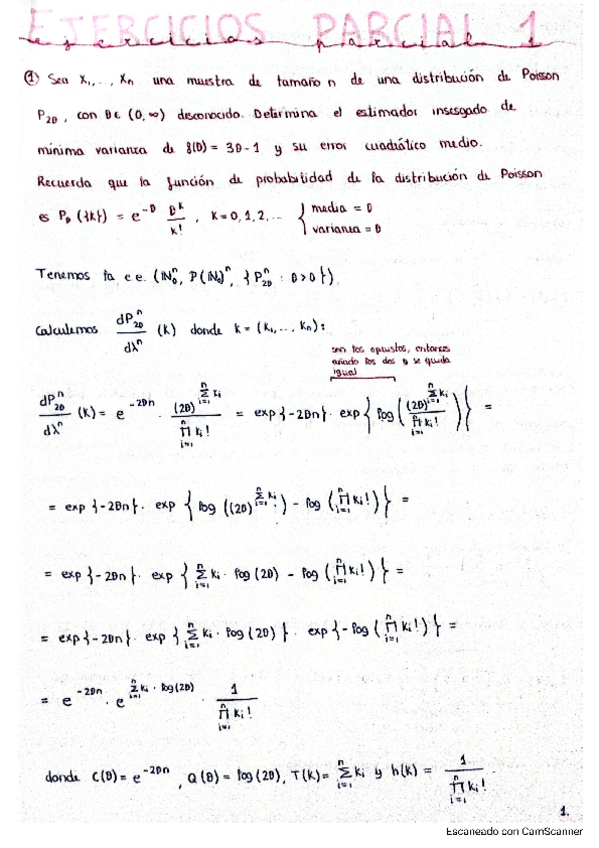 EJERCICIOS PARCIAL 1
ejercicios parcial
① Sea X₁,..., Xn una muestra de tamaño n de una distribución de Poisson
P_{2θ}, con θ ∈ (0, ∞) desconocido. Determina el estimador insesgado de
mínima varianza de g(θ) = 3θ-1 y su error cuadrático medio.
Recuerda que la función de probabilidad de la distribución de Poisson
es P_θ({k}) = e^{-θ} θ^k / k! , k = 0,1,2,... { media = θ
varianza = θ
Tenemos la c.e. (ℕ₀ⁿ, P(ℕ₀)ⁿ, {P_{2θ}ⁿ : θ > 0})
Calculemos dP_{2θ}ⁿ / dλⁿ (k) donde k = (k₁,..., kn):
son los opuestos, entonces
añado los dos y se queda
igual
dP_{2θ}ⁿ / dλⁿ (k) = e^{-2θn} · (2θ)^{∑_{i=1}^n ki} / ∏_{i=1}^n ki! = exp{-2θn} · exp{ log( (2θ)^{∑_{i=1}^n ki} / ∏_{i=1}^n ki! ) } =
= exp{-2θn} · exp { log((2θ)^{∑_{i=1}^n ki}) - log (∏_{i=1}^n ki!) } =
= exp{-2θn} · exp { ∑_{i=1}^n ki · log(2θ) - log (∏_{i=1}^n ki!) } =
= exp{-2θn} · exp { ∑_{i=1}^n ki · log(2θ) } · exp{-log (∏_{i=1}^n ki!) } =
= e^{-2θn} · e^{∑_{i=1}^n ki · log(2θ)} · 1 / ∏_{i=1}^n ki!
donde C(θ) = e^{-2θn}, Q(θ) = log(2θ), T(k) = ∑_{i=1}^n ki y h(k) = 1 / ∏_{i=1}^n ki!
1.
Escaneado con CamScanner